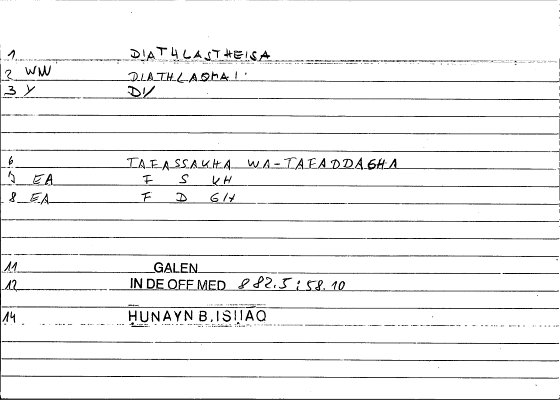 1 DIATHLASTHEISA
2 WN DIATHLASMAI
3 Y DIV
6 TAFASSAKHA WA-TAFADDAGHA
7 EA F S KH
8 EA F D GH
11 GALEN
12 IN DE OFF MED 882.5 ; 58.10
14 HUNAYN B. ISHAQ